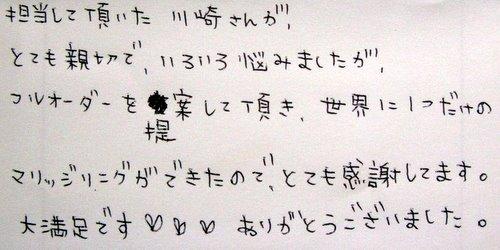 担当して頂いた 川崎さんが、
とても親切で、いろいろ悩みましたが、
フルオーダーを提案して頂き、世界に1つだけの
マリッジリングができたので、とても感謝してます。
大満足です♡♡♡ ありがとうございました。